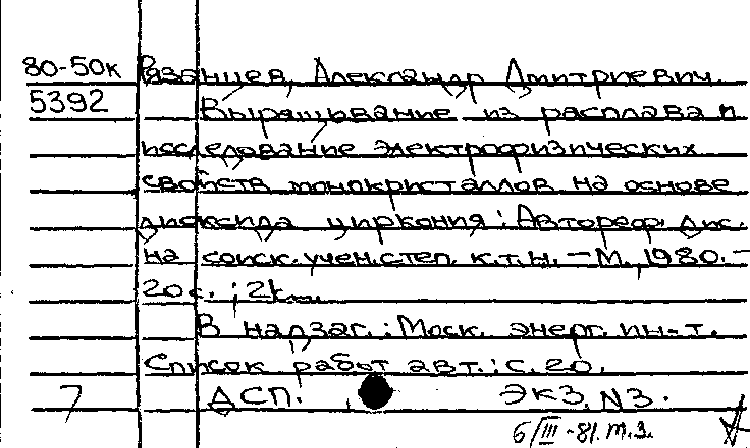 80-50к Рязанцев, Александр Дмитриевич.
5392 Выращивание из расплава и
исследование электрофизических
свойств монокристаллов на основе
диоксида циркония: Автореф. дис.
на соиск. учен. степ. к.т.н. — М., 1980. —
20 с.; 21 см.
В надзаг.: Моск. энерг. ин-т.
Список работ авт.: с. 20.
7 ДСП. , ЭКЗ. N3.
6/III-81. т.з.